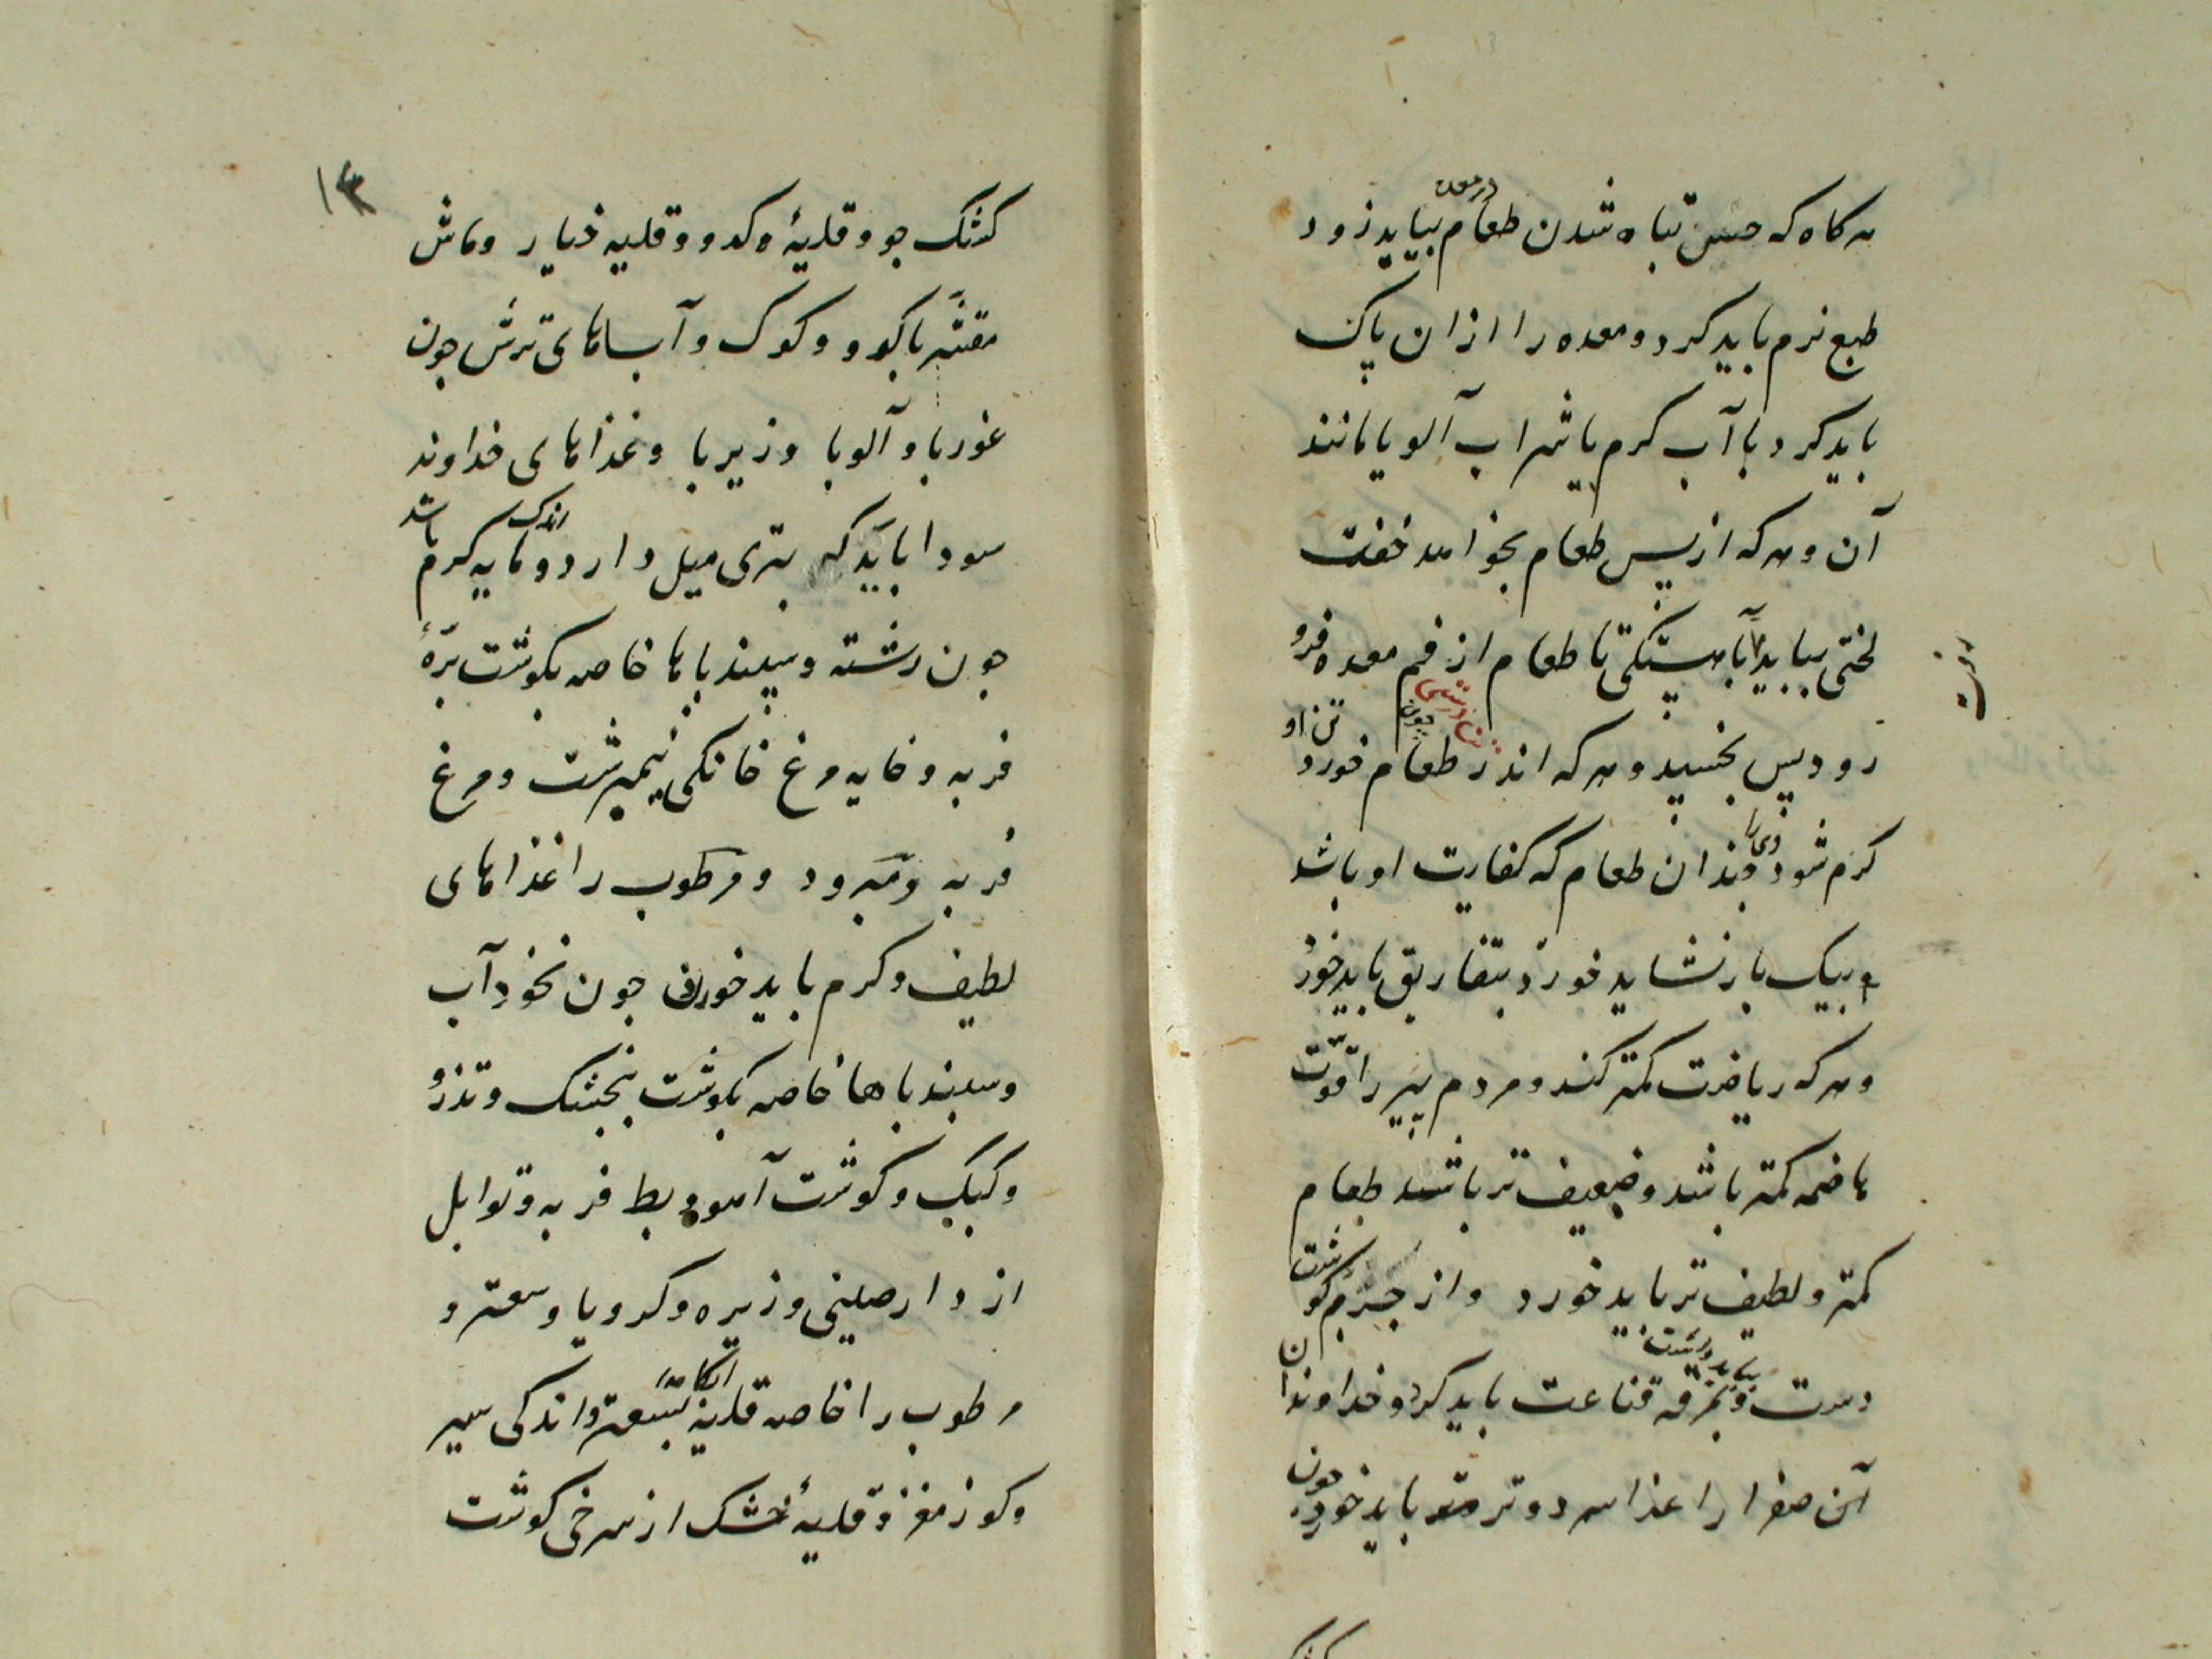 هر کاه که حس تباه شدن طعام در معده بیاید زود
طبع نرم باید کرد و معده را ازان پاک
باید کرد با آب کرم یا شراب آلو یا مانند
آن و هر که از پس طعام بخواهد خفت
لختی بباید آهستکی تا طعام از فم معده فرو
رود پس بخسپد و هر که اندر طعام خورد چون تن او
کرم شود وی را چندان طعام که کفایت او باشد
بیک بار نشاید خورد بتفاریق باید خورد
و هر که ریاضت کمتر کند و مردم پیر را قوت
هاضمه کمتر باشد و ضعیف تر باشد طعام
کمتر و لطیف تر باید خورد و از جرم کوشت
دست بباید داشت و بمرقه قناعت باید کرد و خداوندان
صفرا را غذا سرد و تر باید خورد چون
۱۳
کشک جو و قلیۀ کدو و قلیه خیار و ماش
مقشر با کدو و کوک و آباهای ترش جون
غوربا و آلوبا و زیربا و غذاهای خداوند
سودا باید که بتری میل دارد و مایه کرم اندک باشد
جون رشته و سپیدباها خاصه بکوشت برۀ
فربه و خایه مرغ خانکی نیمبرشت و مرغ
فربه و مبرود و مرطوب را غذاهای
لطیف و کرم باید خوردن جون نخود آب
و سپیدباها خاصه بکوشت بنجشک و تذرو
و کبک و کوشت آهو و بط فربه و توابل
از دارصینی و زیره و کرویا و سعتر و
مرطوب را خاصه قلیه بسعتر و اندکی سیر
و کوز مغز و قلیۀ خشک از سرخی کوشت